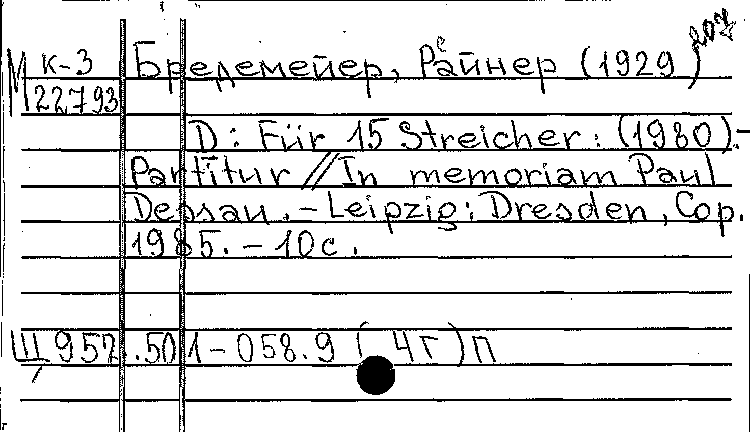 207
М К-3 Бредемейер, Райнер (1929)
е
22793
D: Für 15 Streicher: (1980).-
Partitur // In memoriam Paul
Dessau. - Leipzig; Dresden, Cop.
1985. - 10 с.
Щ 957.501-058.9 (4Г)П